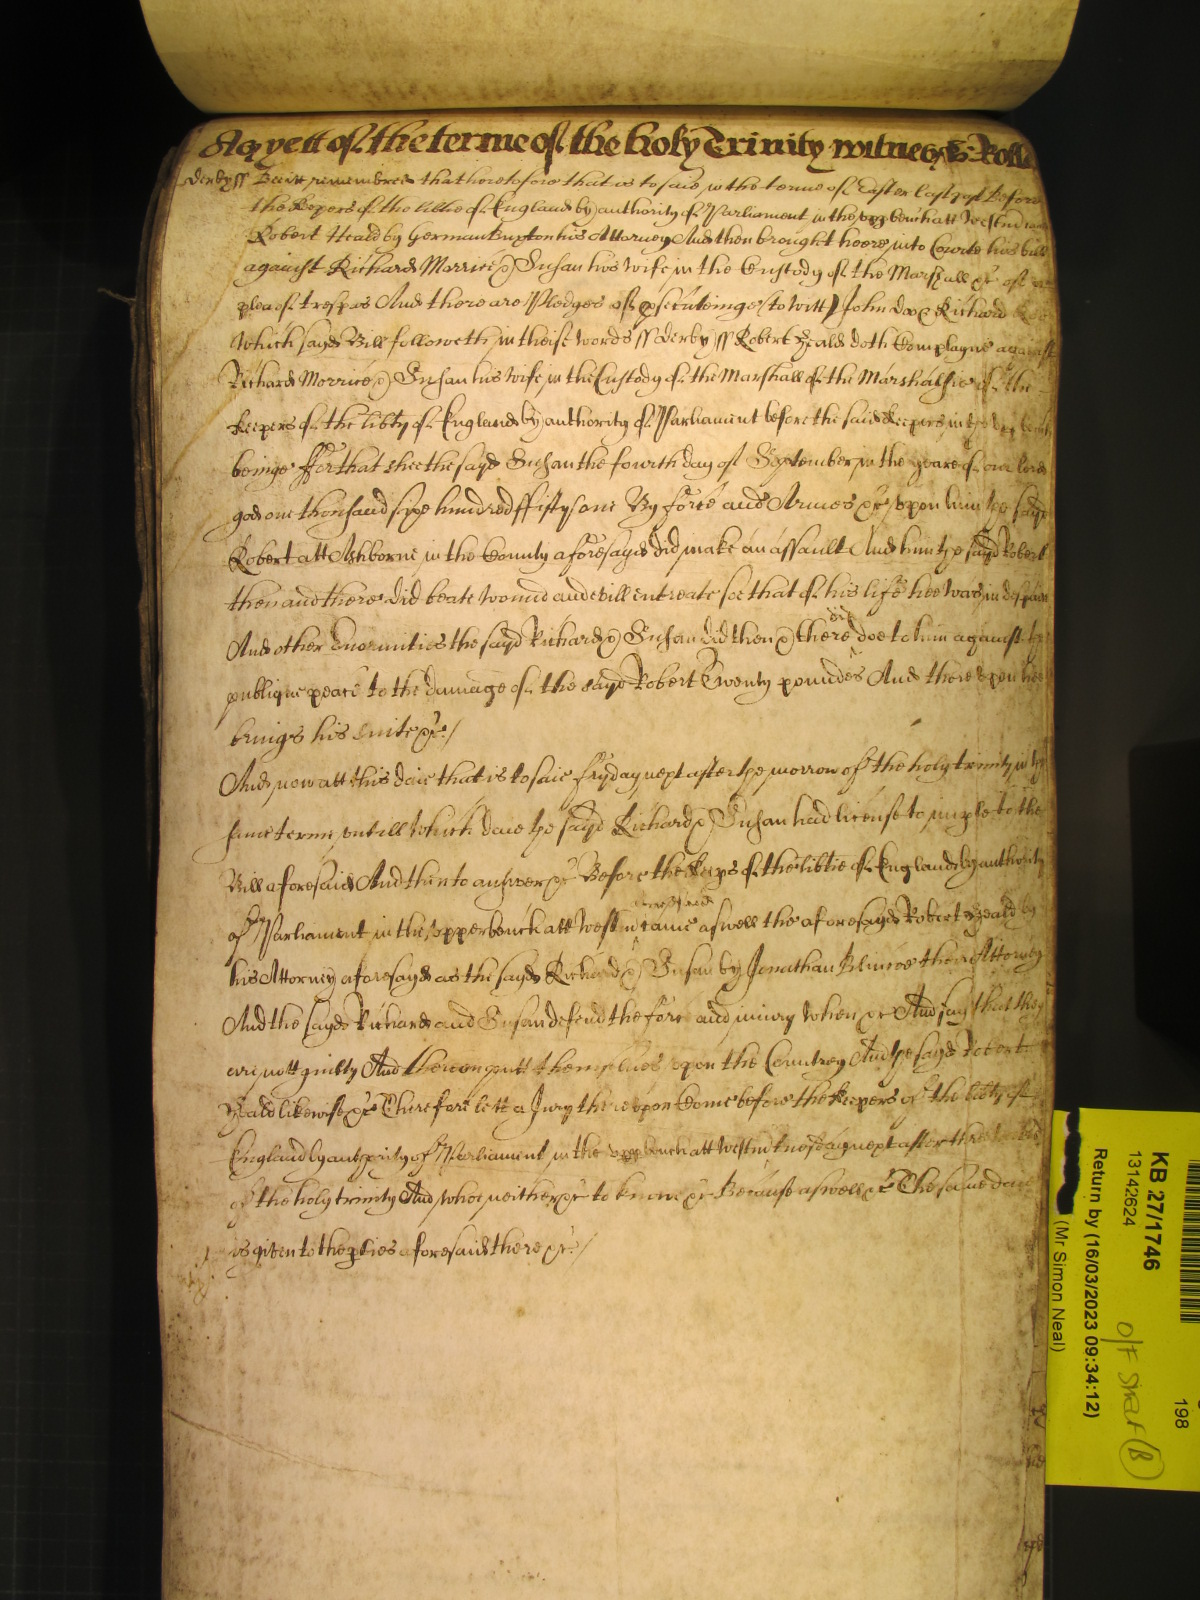 As yett of the terme of the holy Trinity witness Rolle
derby ss Bee itt remembred that heretofore that is to saie in the terme of Easter last past Before
the keepers of the libtie of England by authority of Parliament in the upp bench att Westm came
Robert Heald by German Buxton his Attorney And then brought heere into Courte his bill
against Richard Morrice & Susan his wife in the Custody of the Marshall &c of
plea of trespas And there are Pledges of psecuteinge (to witt) John doe & Richard Roe
Which sayd Bill followeth in theise words ss derby ss Robert Heald doth Complayne against
Richard Morrice & Susan his wife in the Custody of the Marshall of the Marshalsie of the
keepers of the libty of England by authority of Parliament before the said keepers in the upp bench
beinge ffor that shee the sayd Susan the fourth day of September in the yeare of our lord
god one thousand sixe hundred ffifty one By force and Armes &c upon him the sayd
Robert att Ashborne in the County aforesayd did make an assault And him the sayd Robert
then and there did beate wound and evill intreate soe that of his life hee was in despaire
And other Enormities the sayd Richard & Susan did then & there did doe to him against the
publique peace to the damage of the sayd Robert Twenty pounds And thereupon hee
brings his suite &c /
And now att this daie that is to saie fryday next after the morrow of the holy trinity in the
same terme untill which daie the sayd Richard & Susan had license to imple to the
Bill aforesaid And then to answer &c Before the keeps of the libtie of England by authority
of Parliament in the upper bench att Westm came aswell the aforesayd Robert Heald by
his Attorney aforesayd as the sayd Richard & Susan by Jonathan their Attorney
And the sayd Richard and Susan defend the force and iniury when &c And say that they
are nott guilty And thereon putt themselves upon the Countrey And the sayd Robert
Heald likewise &c Therefore lett a Jury thereupon Come before the keepers of the libty of
England by authority of Parliament in the upp bench att Westm next after three
of the holy trinity And who neither &c to know &c Because aswell &c The same daie
is given to the pties aforesaid there &c /
KB 27/1746
13142624
Return by (16/03/2023 09:34:12)
(Mr Simon Neal)
198
O/F
B